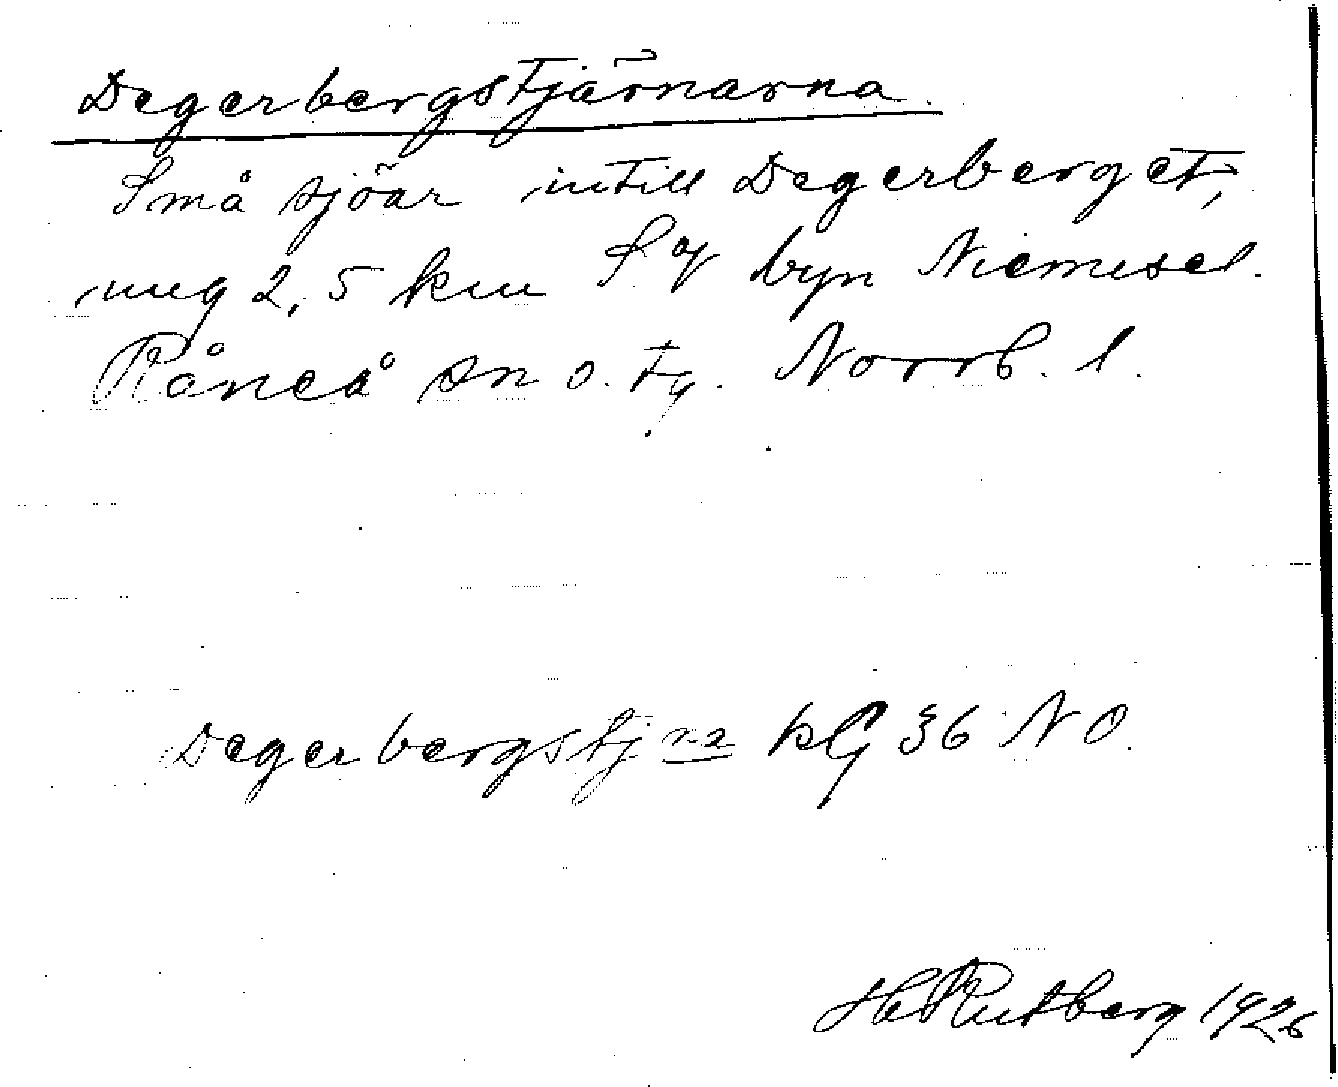 Degerbergstjärnarna.
Små sjöar intill Degerberget,
ung 2,5 km S of byn Niemisel.
Råneå sn o. tg. Norrb. l.
Degerbergstj. na kG 36 NO.
H Rutberg 1926